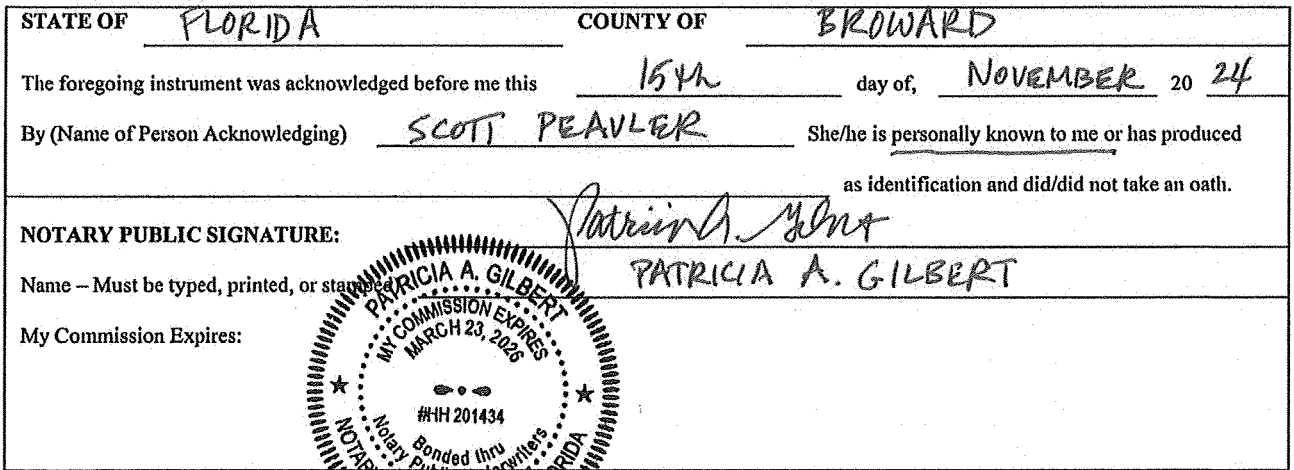 STATE OF FLORIDA COUNTY OF BROWARD
The foregoing instrument was acknowledged before me this 15th day of, NOVEMBER 20 24
By (Name of Person Acknowledging) SCOTT PEAVLER She/he is personally known to me or has produced
as identification and did/did not take an oath.
NOTARY PUBLIC SIGNATURE:
Name – Must be typed, printed, or stamped PATRICIA A. GILBERT
My Commission Expires:
PATRICIA A. GILBERT
MY COMMISSION EXPIRES
MARCH 23, 2026
#HH 201434
Bonded thru
Notary Public